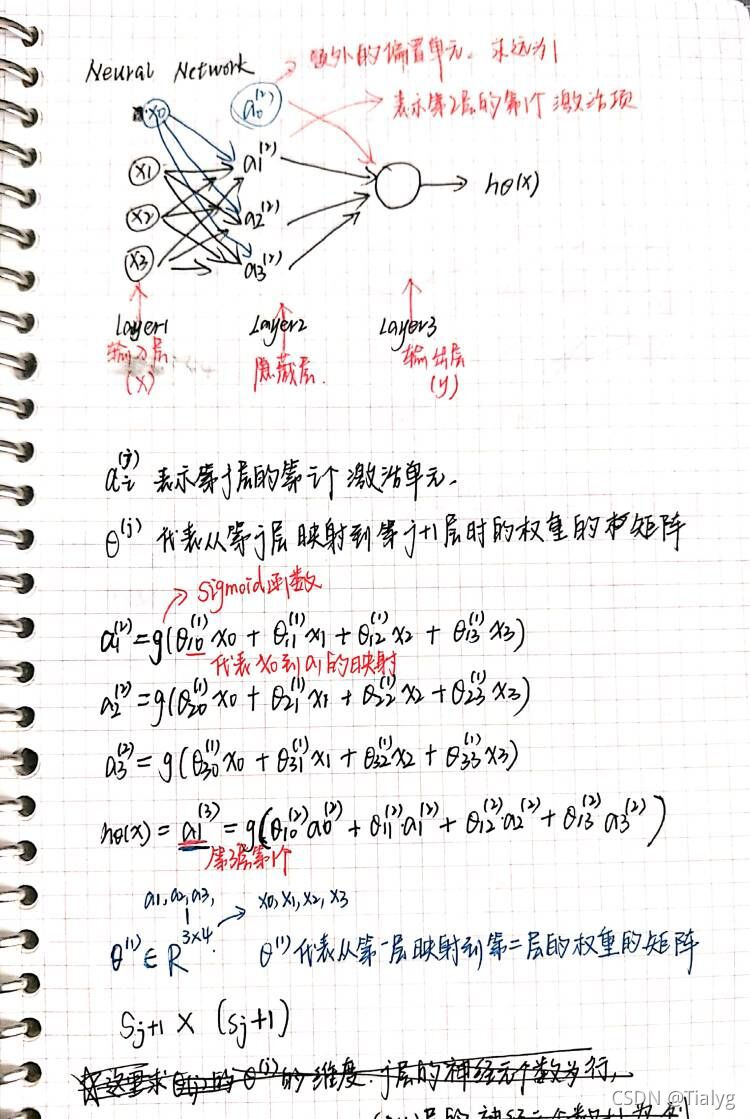 Neural Network
额外的偏置单元，永远为1
表示第2层的第1个激活项
x0 a0^(2)
x1 a1^(2)
x2 a2^(2) hθ(x)
x3 a3^(2)
Layer1 Layer2 Layer3
输入层 隐藏层. 输出层
(x) (y)
ai^(j) 表示第j层的第i个激活单元.
θ^(j) 代表从第j层映射到第j+1层时的权重的矩阵
Sigmoid函数
a1^(2) = g(θ10^(1) x0 + θ11^(1) x1 + θ12^(1) x2 + θ13^(1) x3)
代表x0到a1的映射
a2^(2) = g(θ20^(1) x0 + θ21^(1) x1 + θ22^(1) x2 + θ23^(1) x3)
a3^(2) = g(θ30^(1) x0 + θ31^(1) x1 + θ32^(1) x2 + θ33^(1) x3)
hθ(x) = a1^(3) = g(θ10^(2) a0^(2) + θ11^(2) a1^(2) + θ12^(2) a2^(2) + θ13^(2) a3^(2))
第3层第1个
a1, a2, a3, x0, x1, x2, x3
θ^(1) ∈ R^3×4 θ^(1) 代表从第一层映射到第二层的权重的矩阵
Sj+1 × (Sj+1)
的 θ^(j) 的维度. j层的神经元个数为行,
CSDN @Tialyg